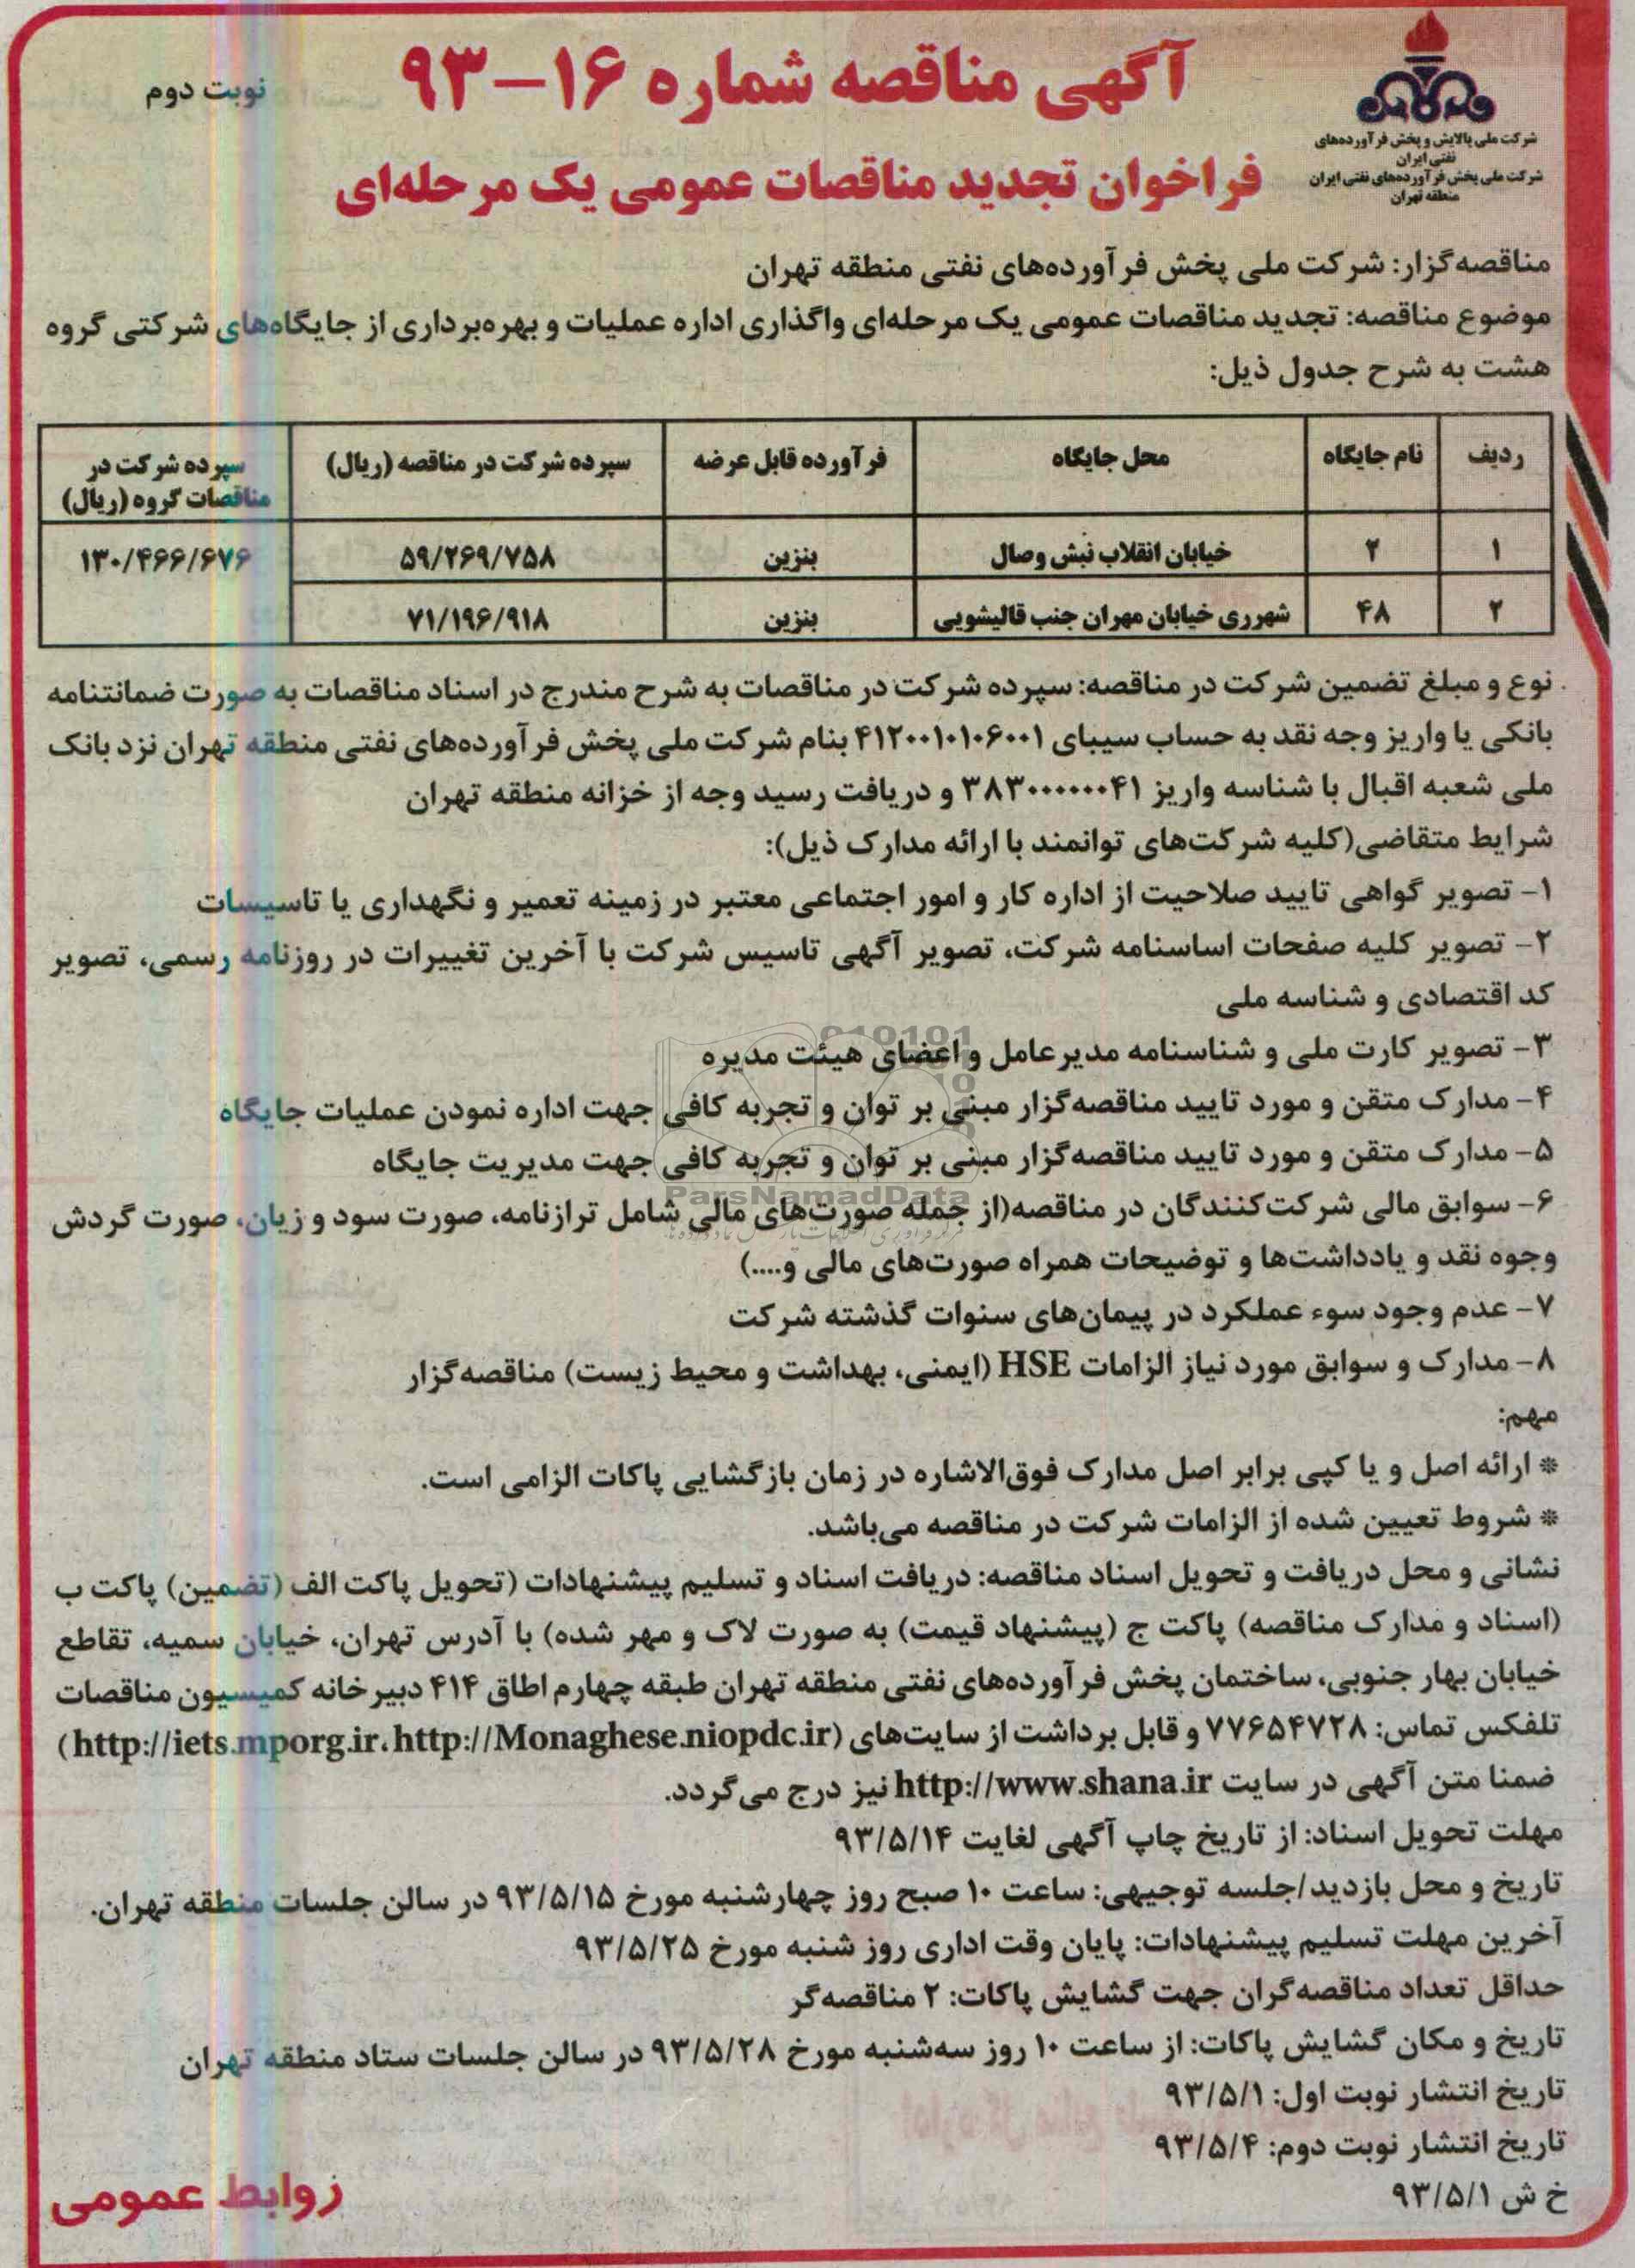 شرکت ملی پالایش و پخش فرآورده‌های
نفتی ایران
شرکت ملی پخش فرآورده‌های نفتی ایران
منطقه تهران
آگهی مناقصه شماره ۱۶-۹۳
نوبت دوم
فراخوان تجدید مناقصات عمومی یک مرحله‌ای
مناقصه‌گزار: شرکت ملی پخش فرآورده‌های نفتی منطقه تهران
موضوع مناقصه: تجدید مناقصات عمومی یک مرحله‌ای واگذاری اداره عملیات و بهره‌برداری از جایگاه‌های شرکتی گروه
هشت به شرح جدول ذیل:
ردیف | نام جایگاه | محل جایگاه | فرآورده قابل عرضه | سپرده شرکت در مناقصه (ریال) | سپرده شرکت در مناقصات گروه (ریال)
۱ | ۲ | خیابان انقلاب نبش وصال | بنزین | ۵۹/۲۶۹/۷۵۸ | ۱۳۰/۴۶۶/۶۷۶
۲ | ۴۸ | شهرری خیابان مهران جنب قالیشویی | بنزین | ۷۱/۱۹۶/۹۱۸
نوع و مبلغ تضمین شرکت در مناقصه: سپرده شرکت در مناقصات به شرح مندرج در اسناد مناقصات به صورت ضمانتنامه
بانکی یا واریز وجه نقد به حساب سیبای ۴۱۲۰۰۱۰۱۰۶۰۰۱ بنام شرکت ملی پخش فرآورده‌های نفتی منطقه تهران نزد بانک
ملی شعبه اقبال با شناسه واریز ۳۸۳۰۰۰۰۰۰۰۴۱ و دریافت رسید وجه از خزانه منطقه تهران
شرایط متقاضی(کلیه شرکت‌های توانمند با ارائه مدارک ذیل):
۱- تصویر گواهی تایید صلاحیت از اداره کار و امور اجتماعی معتبر در زمینه تعمیر و نگهداری یا تاسیسات
۲- تصویر کلیه صفحات اساسنامه شرکت، تصویر آگهی تاسیس شرکت با آخرین تغییرات در روزنامه رسمی، تصویر
کد اقتصادی و شناسه ملی
۳- تصویر کارت ملی و شناسنامه مدیرعامل و اعضای هیئت مدیره
۴- مدارک متقن و مورد تایید مناقصه‌گزار مبنی بر توان و تجربه کافی جهت اداره نمودن عملیات جایگاه
۵- مدارک متقن و مورد تایید مناقصه‌گزار مبنی بر توان و تجربه کافی جهت مدیریت جایگاه
ParsNamadData
۶- سوابق مالی شرکت‌کنندگان در مناقصه(از جمله صورت‌های مالی شامل ترازنامه، صورت سود و زیان، صورت گردش
وجوه نقد و یادداشت‌ها و توضیحات همراه صورت‌های مالی و....)
۷- عدم وجود سوء عملکرد در پیمان‌های سنوات گذشته شرکت
۸- مدارک و سوابق مورد نیاز الزامات HSE (ایمنی، بهداشت و محیط زیست) مناقصه‌گزار
مهم:
* ارائه اصل و یا کپی برابر اصل مدارک فوق‌الاشاره در زمان بازگشایی پاکات الزامی است.
* شروط تعیین شده از الزامات شرکت در مناقصه می‌باشد.
نشانی و محل دریافت و تحویل اسناد مناقصه: دریافت اسناد و تسلیم پیشنهادات (تحویل پاکت الف (تضمین) پاکت ب
(اسناد و مدارک مناقصه) پاکت ج (پیشنهاد قیمت) به صورت لاک و مهر شده) با آدرس تهران، خیابان سمیه، تقاطع
خیابان بهار جنوبی، ساختمان پخش فرآورده‌های نفتی منطقه تهران طبقه چهارم اطاق ۴۱۴ دبیرخانه کمیسیون مناقصات
تلفکس تماس: ۷۷۶۵۴۷۲۸ و قابل برداشت از سایت‌های (http://iets.mporg.ir، http://Monaghese.niopdc.ir)
ضمنا متن آگهی در سایت http://www.shana.ir نیز درج می‌گردد.
مهلت تحویل اسناد: از تاریخ چاپ آگهی لغایت ۹۳/۵/۱۴
تاریخ و محل بازدید/جلسه توجیهی: ساعت ۱۰ صبح روز چهارشنبه مورخ ۹۳/۵/۱۵ در سالن جلسات منطقه تهران.
آخرین مهلت تسلیم پیشنهادات: پایان وقت اداری روز شنبه مورخ ۹۳/۵/۲۵
حداقل تعداد مناقصه‌گران جهت گشایش پاکات: ۲ مناقصه‌گر
تاریخ و مکان گشایش پاکات: از ساعت ۱۰ روز سه‌شنبه مورخ ۹۳/۵/۲۸ در سالن جلسات ستاد منطقه تهران
تاریخ انتشار نوبت اول: ۹۳/۵/۱
تاریخ انتشار نوبت دوم: ۹۳/۵/۴
خ ش ۹۳/۵/۱
روابط عمومی